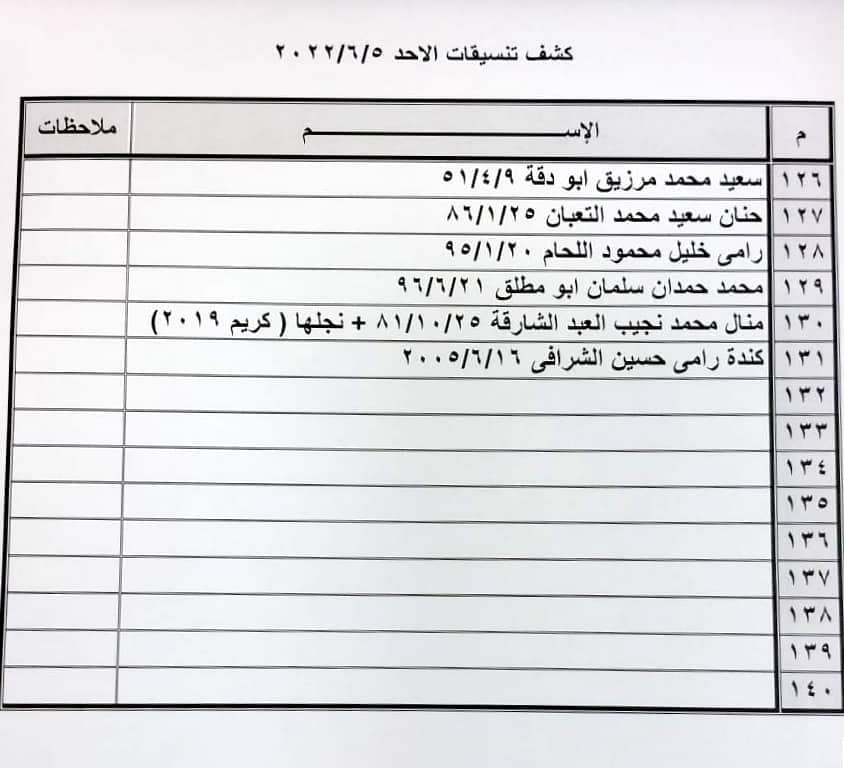 كشف تنسيقات الاحد ٢٠٢٢/٦/٥
م الإســـــــــم ملاحظات
١٢٦ سعيد محمد مرزيق ابو دقة ٥١/٤/٩
١٢٧ حنان سعيد محمد التعبان ٨٦/١/٢٥
١٢٨ رامى خليل محمود اللحام ٩٥/١/٢٠
١٢٩ محمد حمدان سلمان ابو مطلق ٩٦/٦/٢١
١٣٠ منال محمد نجيب العبد الشارقة ٨١/١٠/٢٥ + نجلها ( كريم ٢٠١٩)
١٣١ كندة رامى حسين الشرافى ٢٠٠٥/٦/١٦
١٣٢
١٣٣
١٣٤
١٣٥
١٣٦
١٣٧
١٣٨
١٣٩
١٤٠